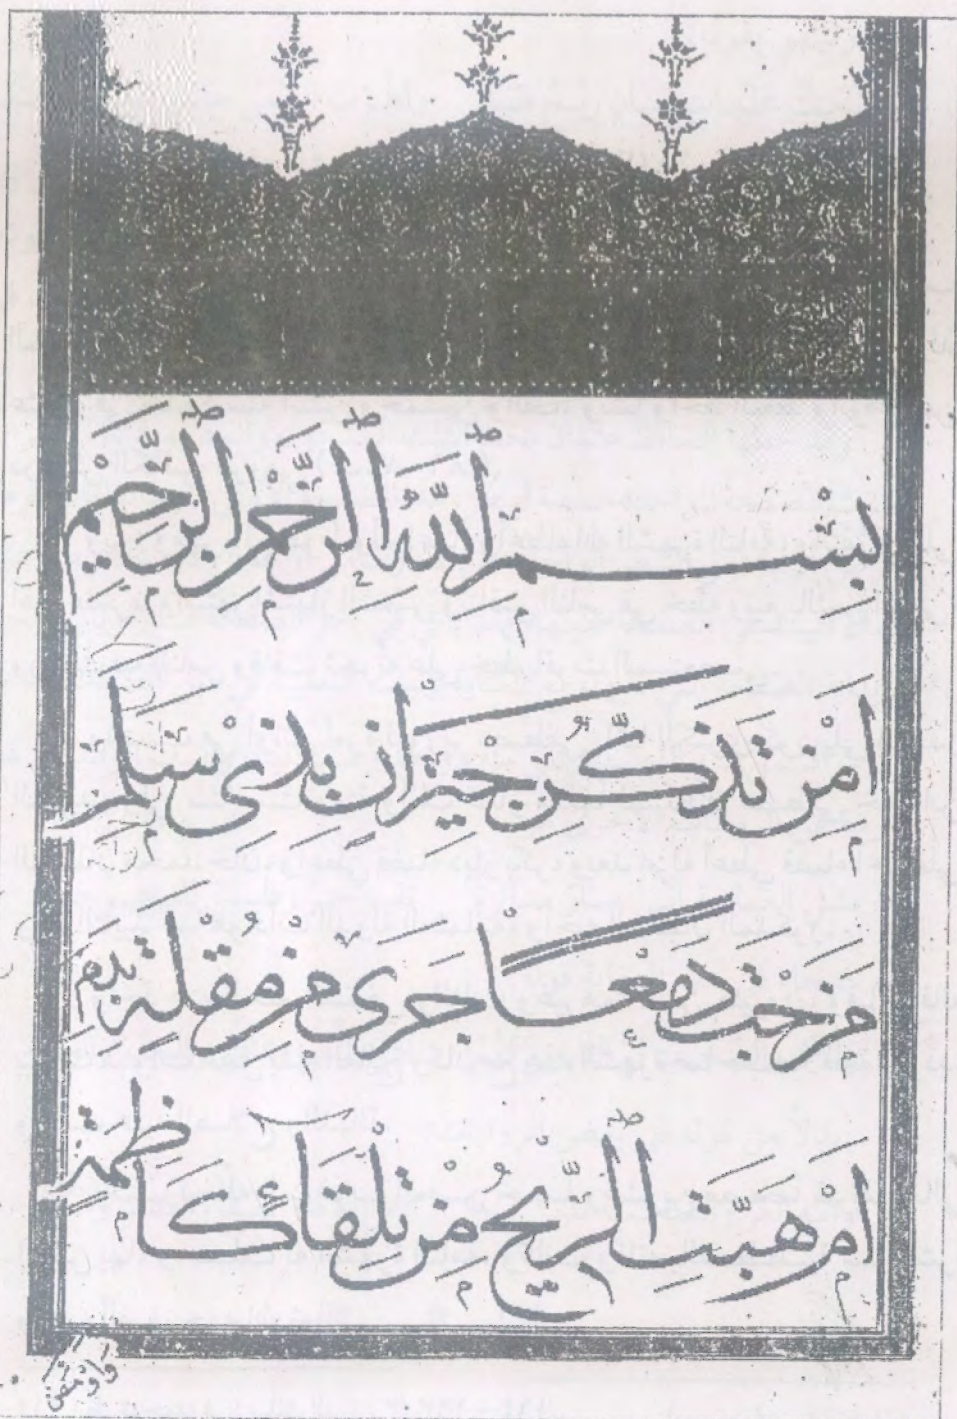 بِسْمِ اللَّهِ الرَّحْمَٰنِ الرَّحِيمِ
اَمِنْ تَذَكُّرِ جِيرَانٍ بِذِى سَلَمٍ
مَزَجْتَ دَمْعًا جَرٰى مِنْ مُقْلَةٍ بِدَمٍ
اَمْ هَبَّتِ الرِّيحُ مِنْ تِلْقَاءِ كَاظِمَةٍ
وَاَوْمَضَ